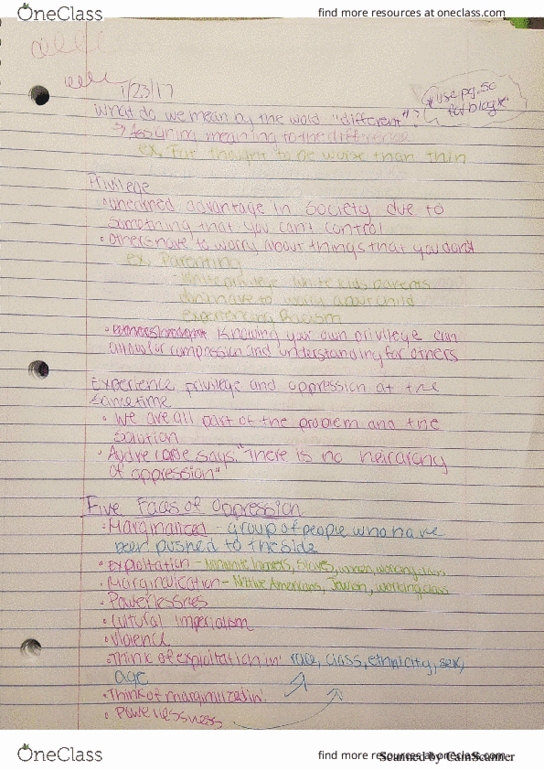 OneClass
find more resources at oneclass.com
1/23/17
*use pg. 50
for blog*
What do we mean by the word "different"?
→ Assigning meaning to the difference
ex. Fat thought to be worse than thin
Privilege
• unearned advantage in society due to
something that you can't control
• others have to worry about things that you don't
ex. Parenting
- White privilege white kids parents
don't have to worry about child
experiencing Racism
• Knowing your own privilege can
allow for compassion and understanding for others
Experience privilege and oppression at the
same time
• We are all part of the problem and the
solution
• Audre Lorde says, "There is no heirarchy
of oppression"
Five Faces of Oppression
• Marginalized - group of people who have
been pushed to the side
• Exploitation - slaves, women, working class
• Marginalization - Native Americans, Jewish, working class
• Powerlessness
• Cultural imperialism
• Violence
• Think of exploitation in: race, class, ethnicity, sex,
age
• Think of marginalization:
• Powerlessness
OneClass
find more resources at oneclass.com
Scanned by CamScanner